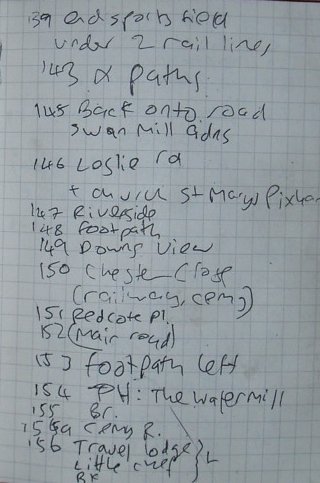 139 end sports field
under 2 rail lines
143 α paths
145 Back onto road
Swan Mill Gdns
146 Leslie rd
+ church St Marys Pixham
147 Riverside
148 footpath
149 Downs View
150 Chester Close
(railway, cemy)
151 Redcote Pl.
152 (Main road)
153 footpath left
154 PH: The Watermill
155 Br.
156a Cemy R.
156 Travel lodge
Little chef
L